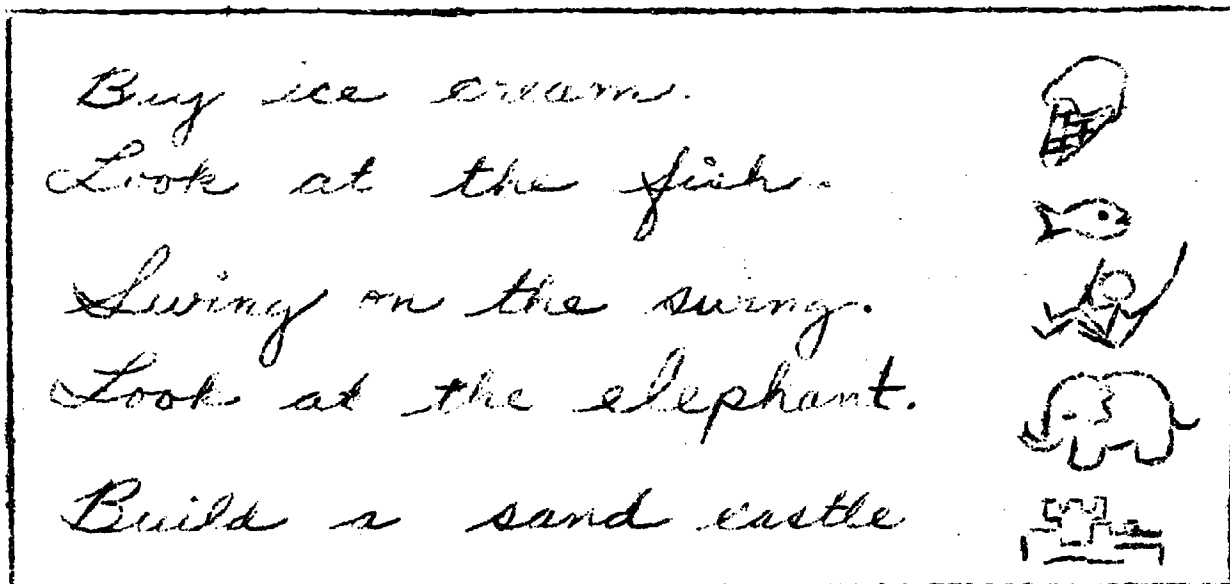 Buy ice cream.
Look at the fish.
Swing on the swing.
Look at the elephant.
Build a sand castle